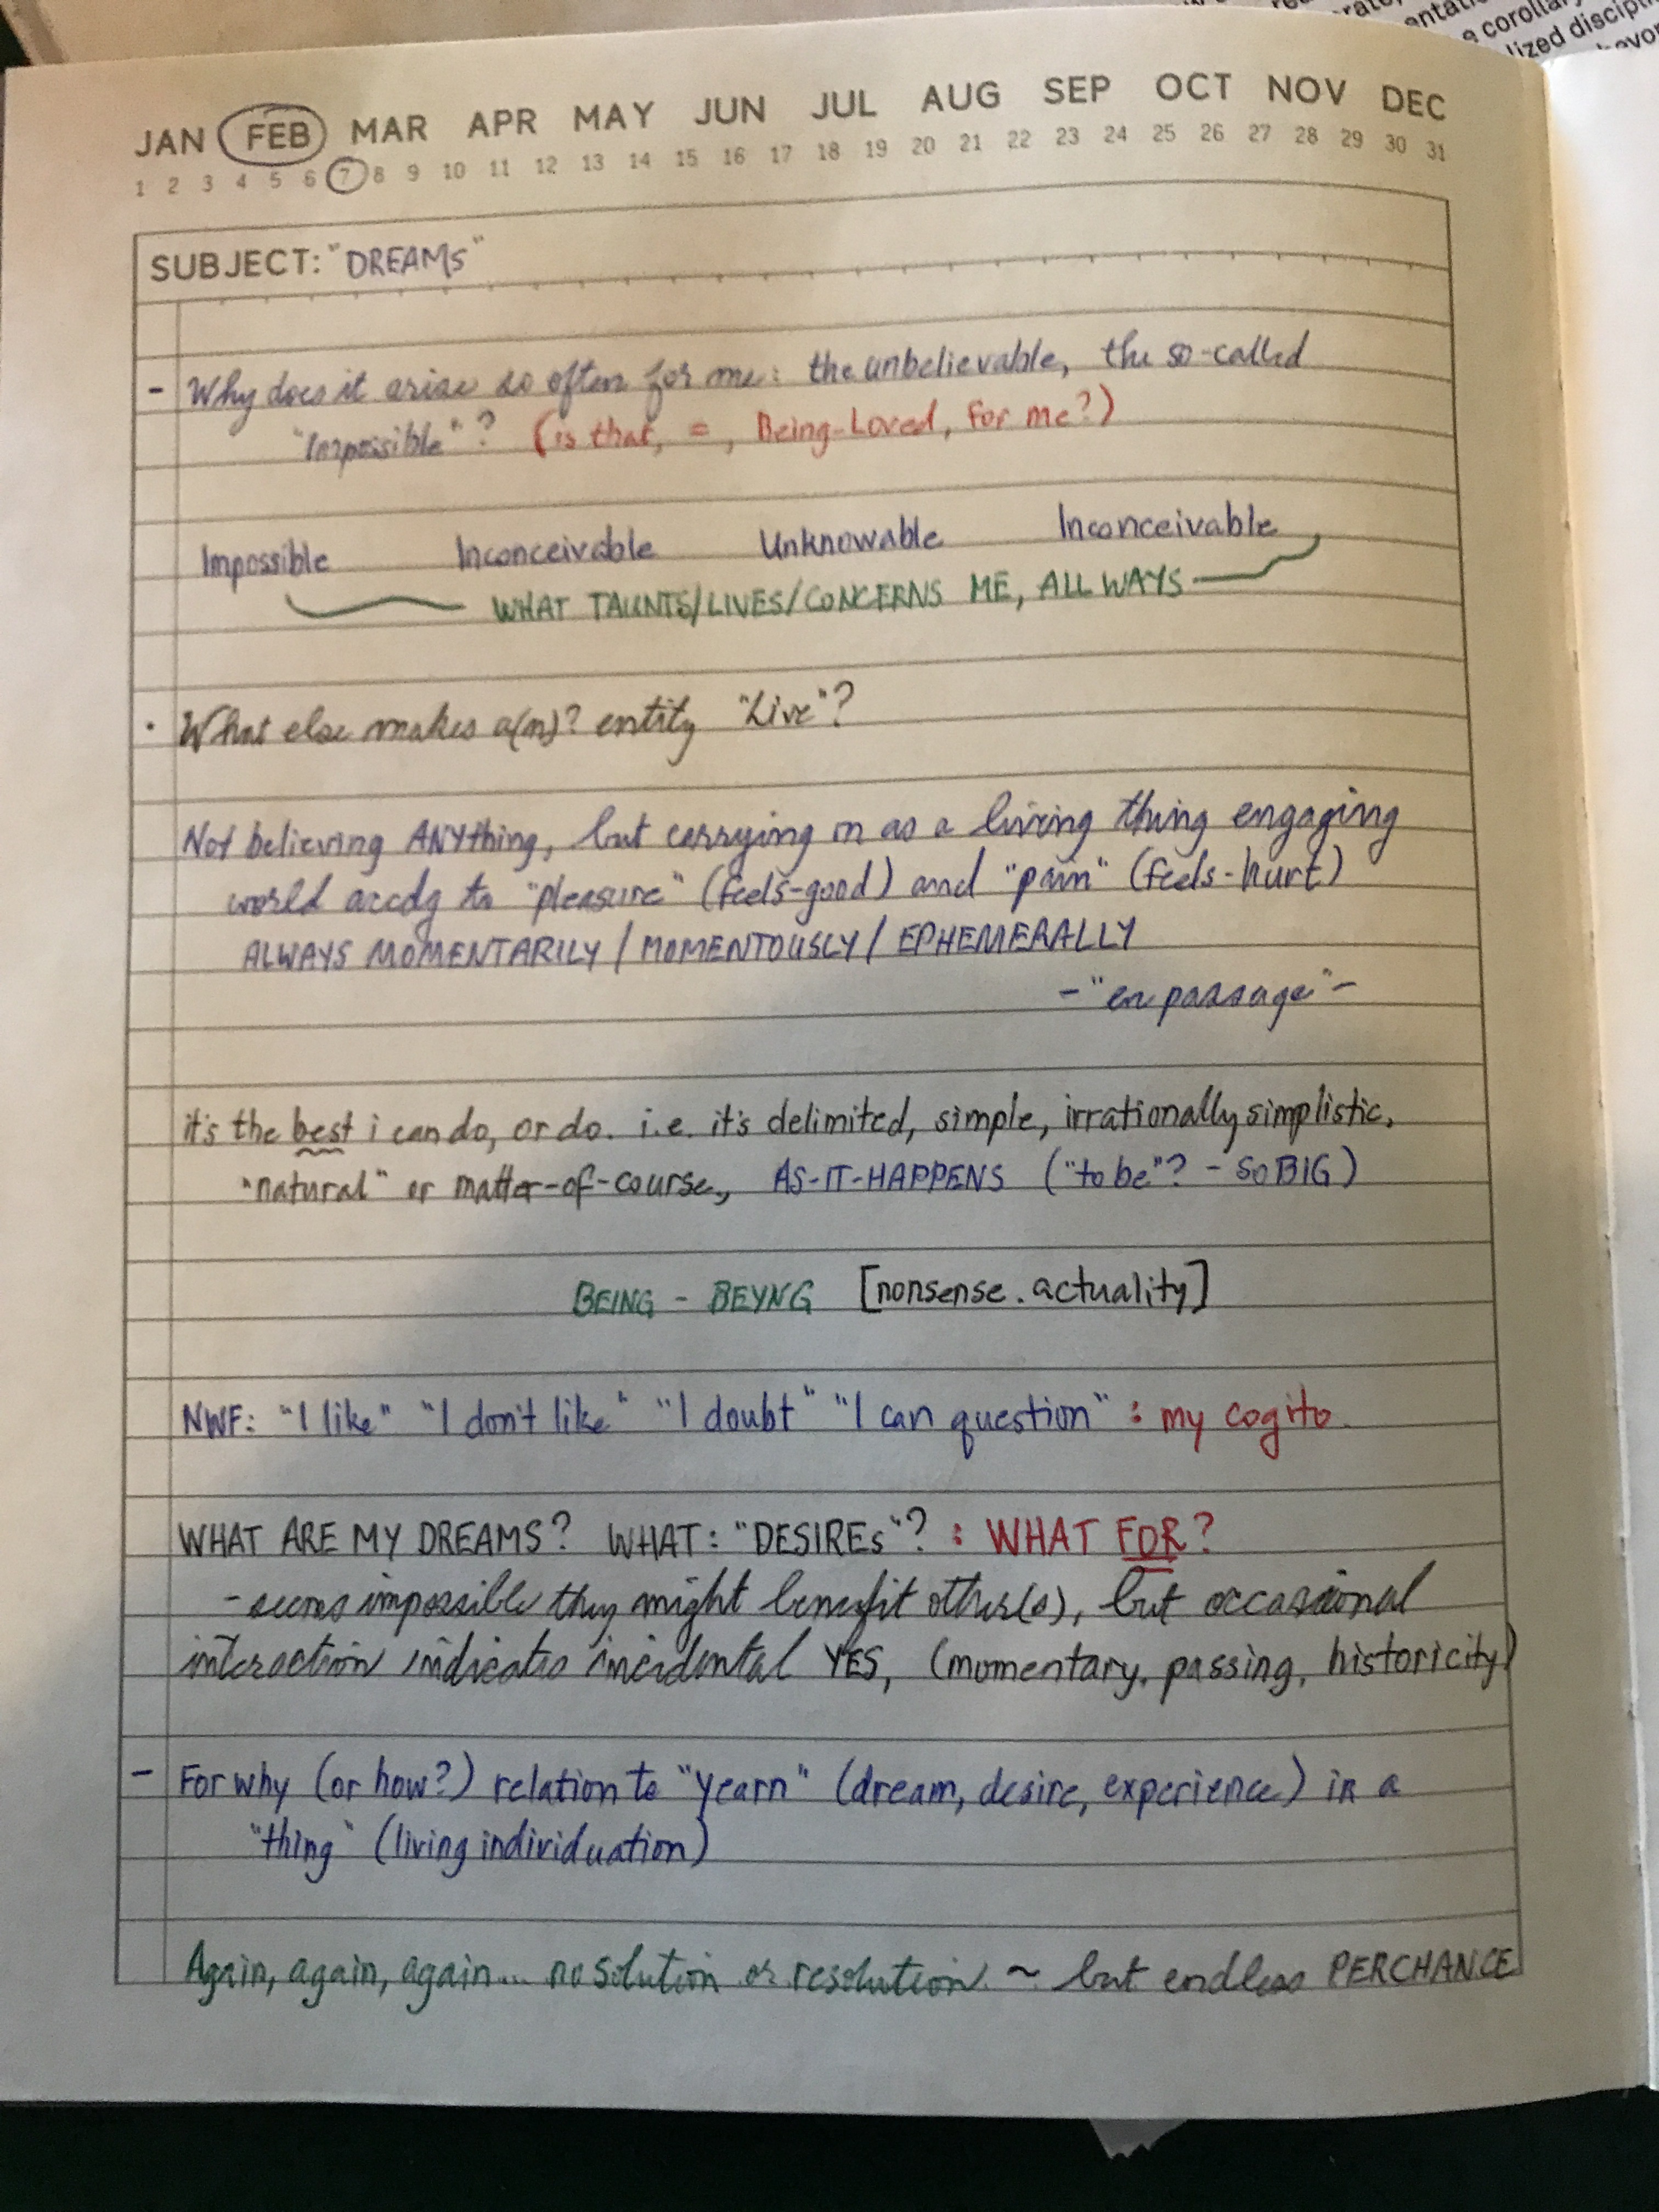 JAN FEB MAR APR MAY JUN JUL AUG SEP OCT NOV DEC
1 2 3 4 5 6 7 8 9 10 11 12 13 14 15 16 17 18 19 20 21 22 23 24 25 26 27 28 29 30 31
SUBJECT: "DREAMS"
- Why does it arise so often for me: the unbelievable, the so-called
"Impossible"? (is that, =, Being-Loved, for me?)
Impossible Inconceivable Unknowable Inconceivable
WHAT TAUNTS/LIVES/CONCERNS ME, ALL WAYS
· What else makes a(n)? entity "Live"?
Not believing ANYthing, but carrying on as a living thing engaging
world accdg to "pleasure" (feels-good) and "pain" (feels-hurt)
ALWAYS MOMENTARILY / MOMENTOUSLY / EPHEMERALLY
- "en passage" -
it's the best i can do, or do. i.e. it's delimited, simple, irrationally simplistic,
"natural" or matter-of-course, AS-IT-HAPPENS ("to be"? - SO BIG)
BEING - BEYNG [nonsense.actuality]
NWF: "I like" "I don't like" "I doubt" "I can question" : my cogito.
WHAT ARE MY DREAMS? WHAT: "DESIREs"? : WHAT FOR?
- seems impossible they might benefit other(s), but occasional
interaction indicates incidental YES, (momentary, passing, historicity)
- For why (or how?) relation to "yearn" (dream, desire, experience) in a
"thing" (living individuation)
Again, again, again... no solution or resolution. ~ but endless PERCHANCE